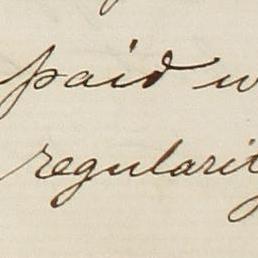 paid w
regularity